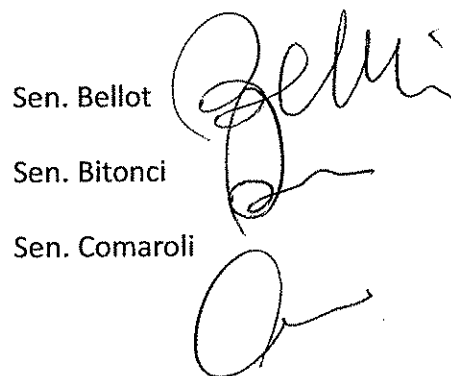 Sen. Bellot
Sen. Bitonci
Sen. Comaroli